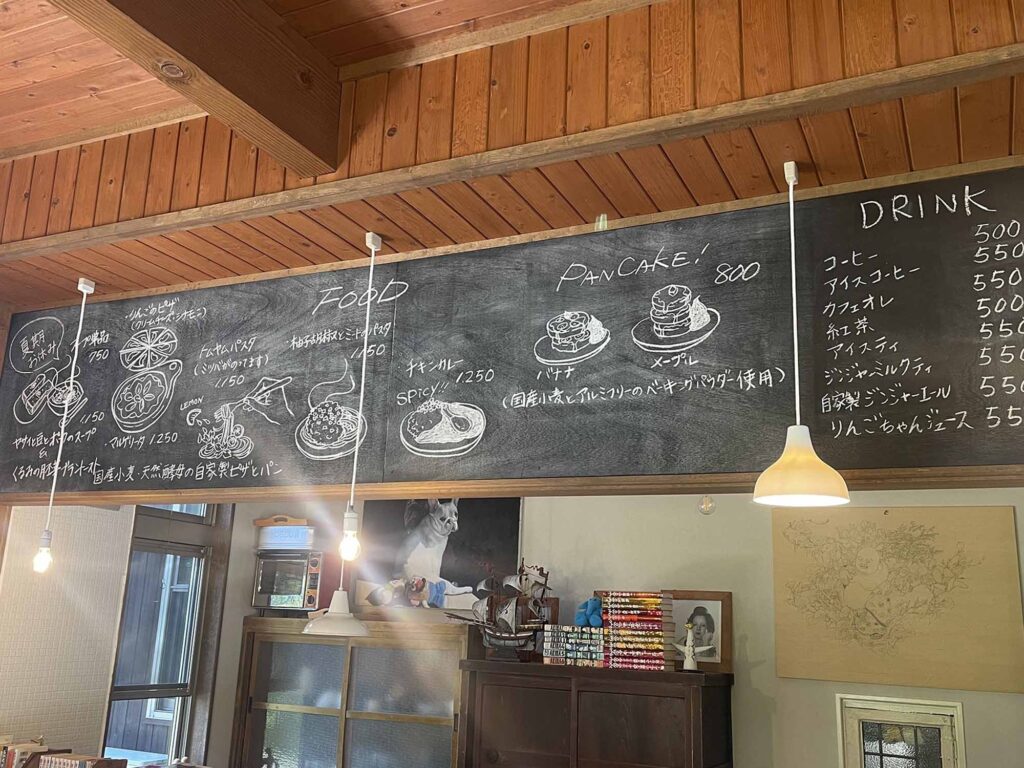 FOOD
夏期
お休み
単品
750
1150
ヤサイと豆とポークのスープ
&
・りんごのピザ
(クリームチーズ・シナモン)
マルゲリータ 1250
国産小麦・天然酵母の自家製ピザとパン
トムヤムパスタ
(ミツバがのってます)
1150
LEMON
ミートのパスタ
1150
チキンカレー
SPICY!! 1250
PANCAKE!
800
バナナ
メープル
(国産小麦とアルミフリーのベーキングパウダー使用)
DRINK
コーヒー 500
アイスコーヒー 550
カフェオレ 550
紅茶 500
アイスティ 550
ジンジャーミルクティ 550
自家製ジンジャーエール 550
りんごちゃんジュース 55